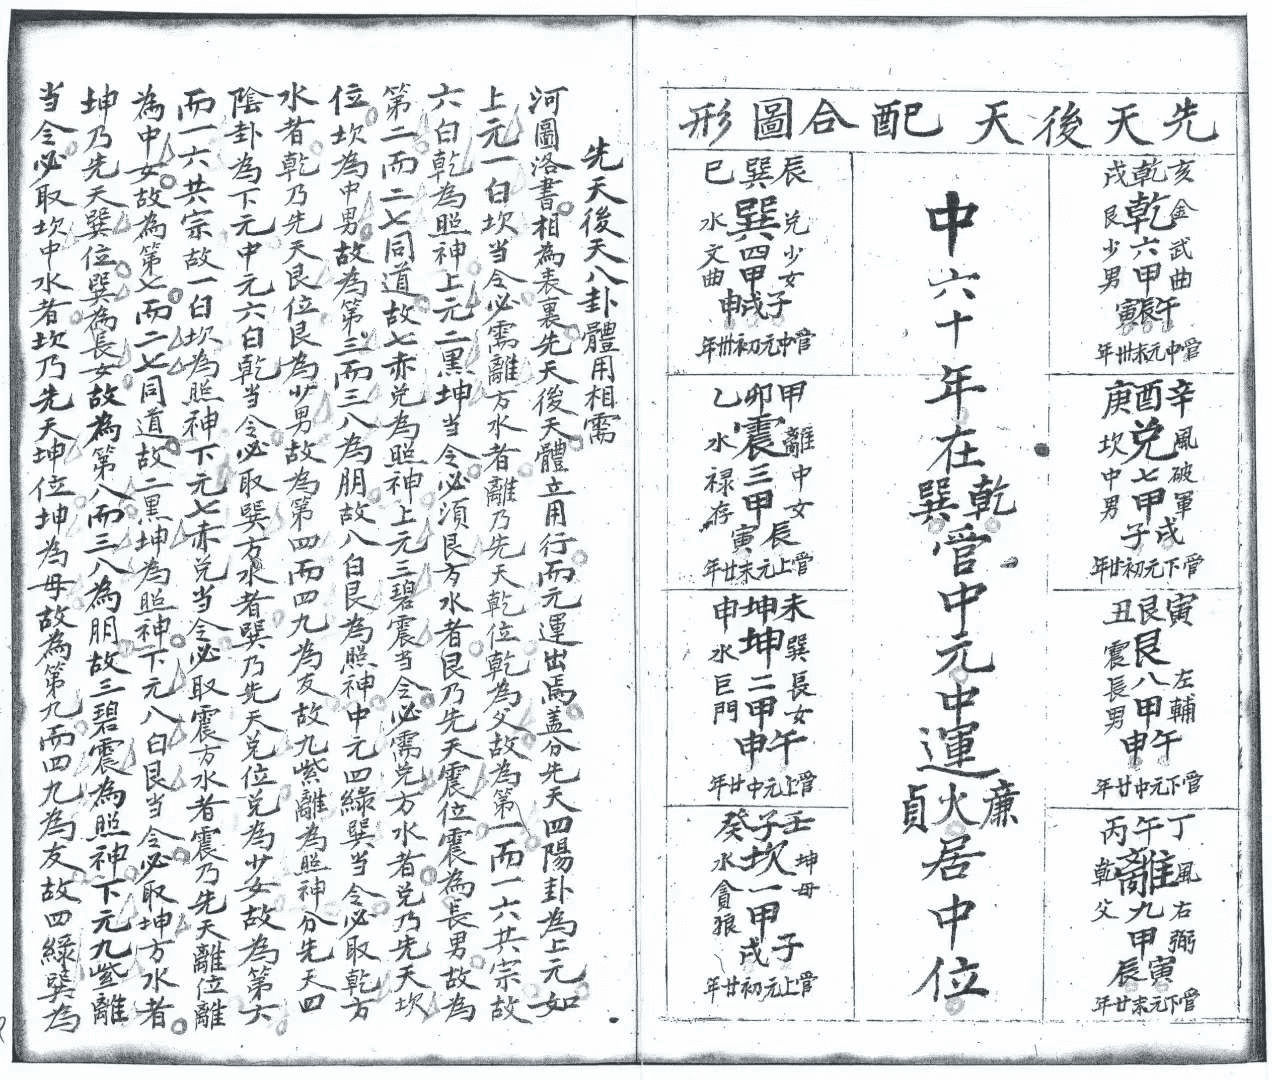 先天後天配合圖形
亥乾戌
金武曲
乾六甲午辰寅
艮少男
管中元末卅年
辛酉庚
風破軍
兌七甲戌子
坎中男
管下元初廿年
寅艮丑
左輔
艮八甲午申
震長男
管下元中廿年
丁午丙
風右弼
離九甲寅辰
乾父
管下元末廿年
中六十年在乾巽管中元中運廉火貞居中位
辰巽巳
兌少女
巽四甲子戌申
水文曲
管中元初卅年
甲卯乙
離中女
震三甲辰寅
水禄存
管上元末廿年
未坤申
巽長女
坤二甲午申
水巨門
管上元中廿年
壬子癸
坤母
坎一甲子戌
水貪狼
管上元初廿年
先天後天八卦體用相需
河圖洛書相為表裏先天後天體立用行而元運出焉蓋分先天四陽卦為上元如
上元一白坎当令必需離方水者離乃先天乾位乾為父故為第一而一六共宗故
六白乾為照神上元二黑坤当令必須艮方水者艮乃先天震位震為長男故為
第二而二七同道故七赤兌為照神上元三碧震当令必需兌方水者兌乃先天坎
位坎為中男故為第三而三八為朋故八白艮為照神中元四綠巽当令必取乾方
水者乾乃先天艮位艮為少男故為第四而四九為友故九紫離為照神分先天四
陰卦為下元中元六白乾当令必取巽方水者巽乃先天兌位兌為少女故為第六
而一六共宗故一白坎為照神下元七赤兌当令必取震方水者震乃先天離位離
為中女故為第七而二七同道故二黑坤為照神下元八白艮当令必取坤方水者
坤乃先天巽位巽為長女故為第八而三八為朋故三碧震為照神下元九紫離
当令必取坎中水者坎乃先天坤位坤為母故為第九而四九為友故四綠巽為